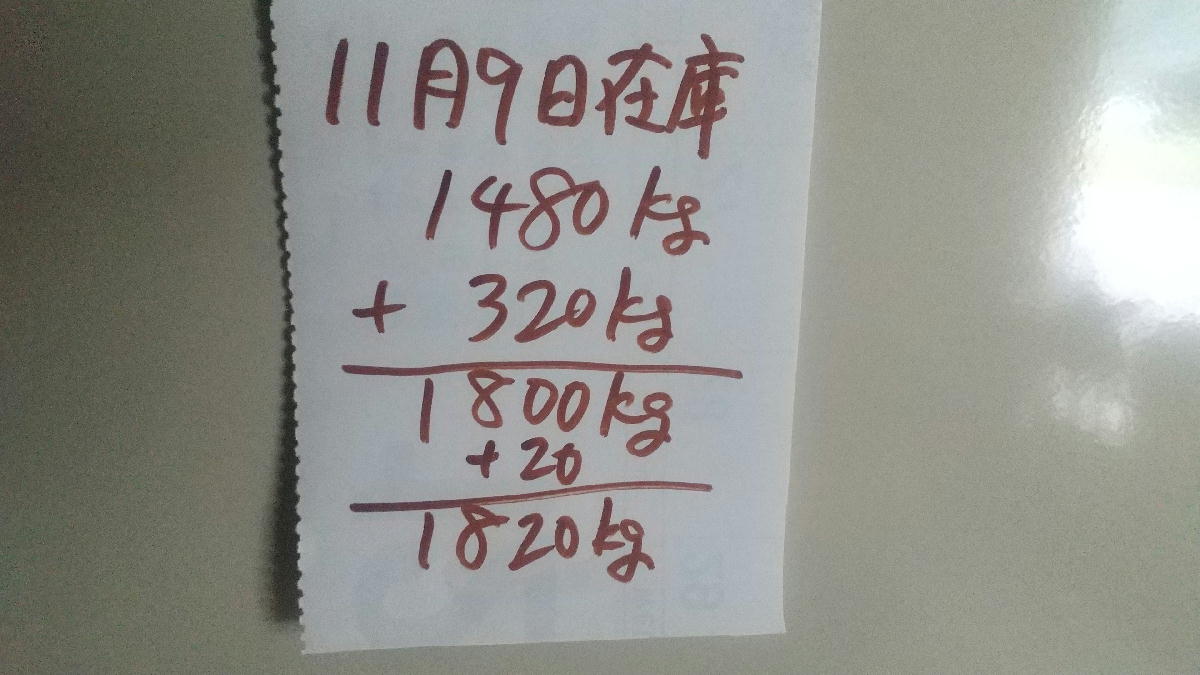 11月9日在庫
1480kg
+ 320kg
1800kg
+20
1820kg